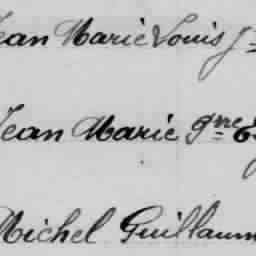 Jean Marie Louis J
Jean Marie gme
Michel Guillaum